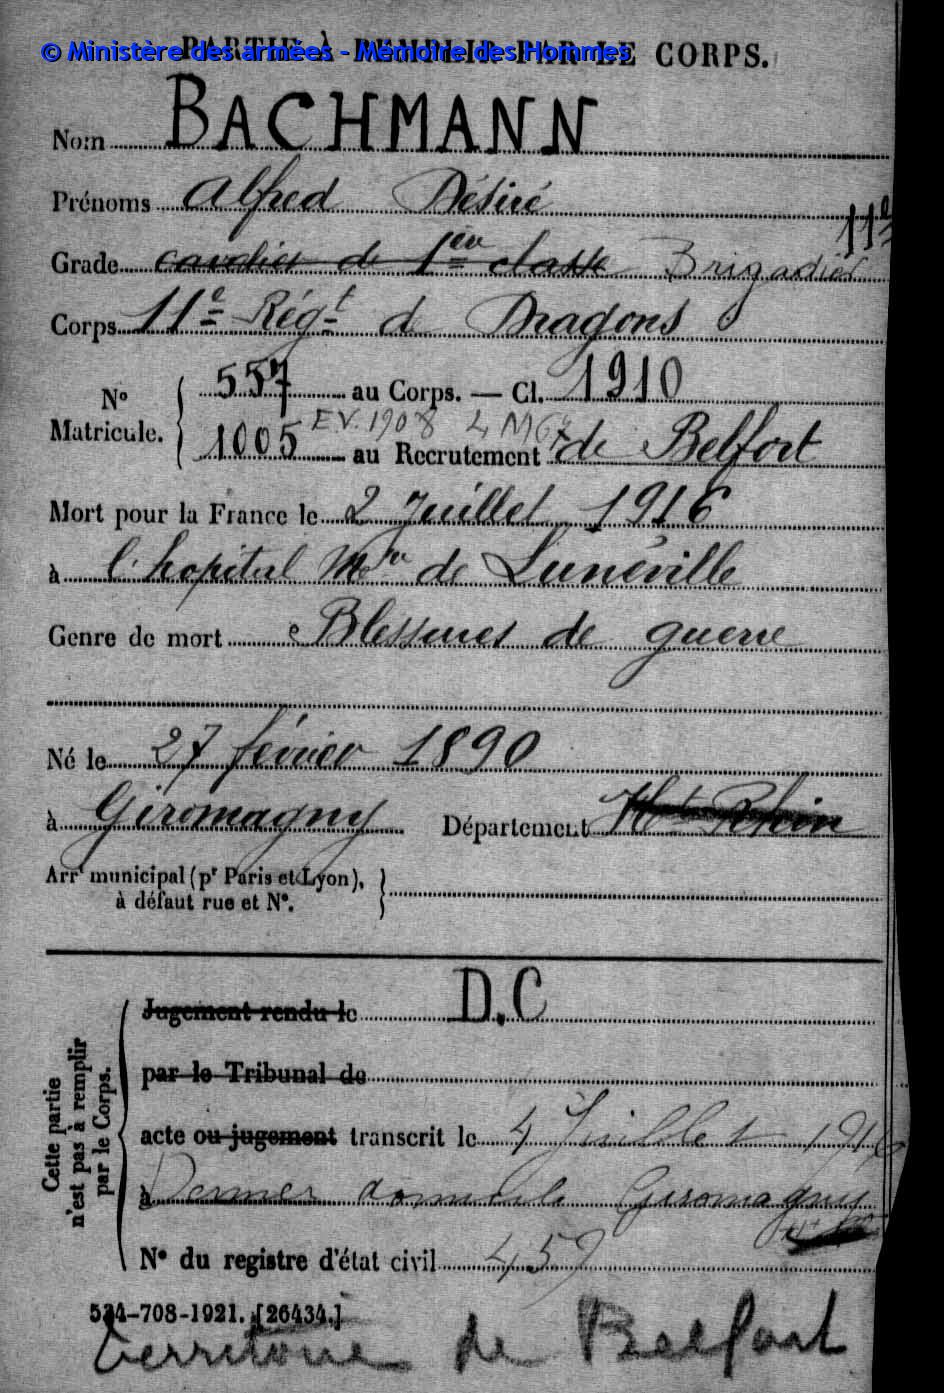 © Ministère des armées - Mémoire des Hommes
PARTIE À REMPLIR PAR LE CORPS.
Nom BACHMANN
Prénoms Alfred Désiré
11e
Grade cavalier de 1ère classe Brigadier
Corps 11e Régt de Dragons
No Matricule. 557 au Corps. — Cl. 1910
EV. 1908
1005 au Recrutement de Belfort
Mort pour la France le 2 Juillet 1916
à l'hopital Mre de Lunéville
Genre de mort Blessures de guerre
Né le 27 février 1890
à Giromagny Département Ht Rhin
Arrt municipal (pr Paris et Lyon),
à défaut rue et No.
Cette partie n'est pas à remplir par le Corps.
Jugement rendu le D.C
par le Tribunal de
acte ou jugement transcrit le 4 Juillet 1916
à Dernier domicile Giromagny
No du registre d'état civil 459
534-708-1921. [26434.]
territoire de Belfort